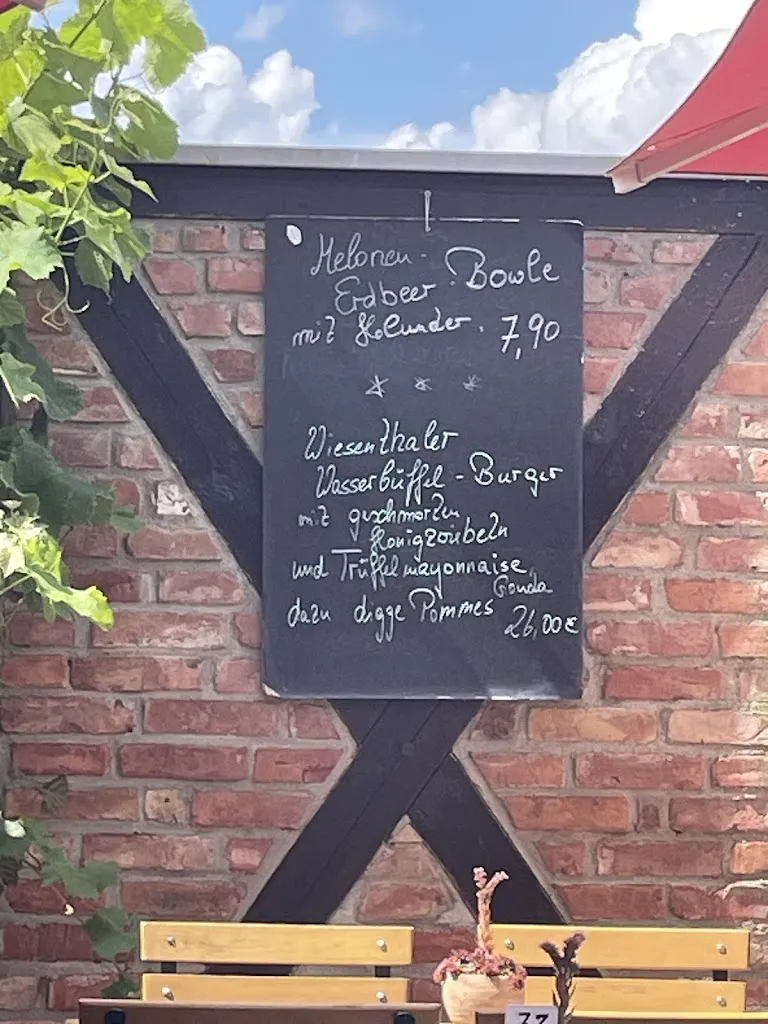 Melonen-
Erdbeer-Bowle
mit Holunder. 7,90
* * *
Wiesenthaler
Wasserbüffel-Burger
mit geschmorten
Honigzwiebeln
und Trüffelmayonnaise,
Gouda
dazu digge Pommes 26,00€